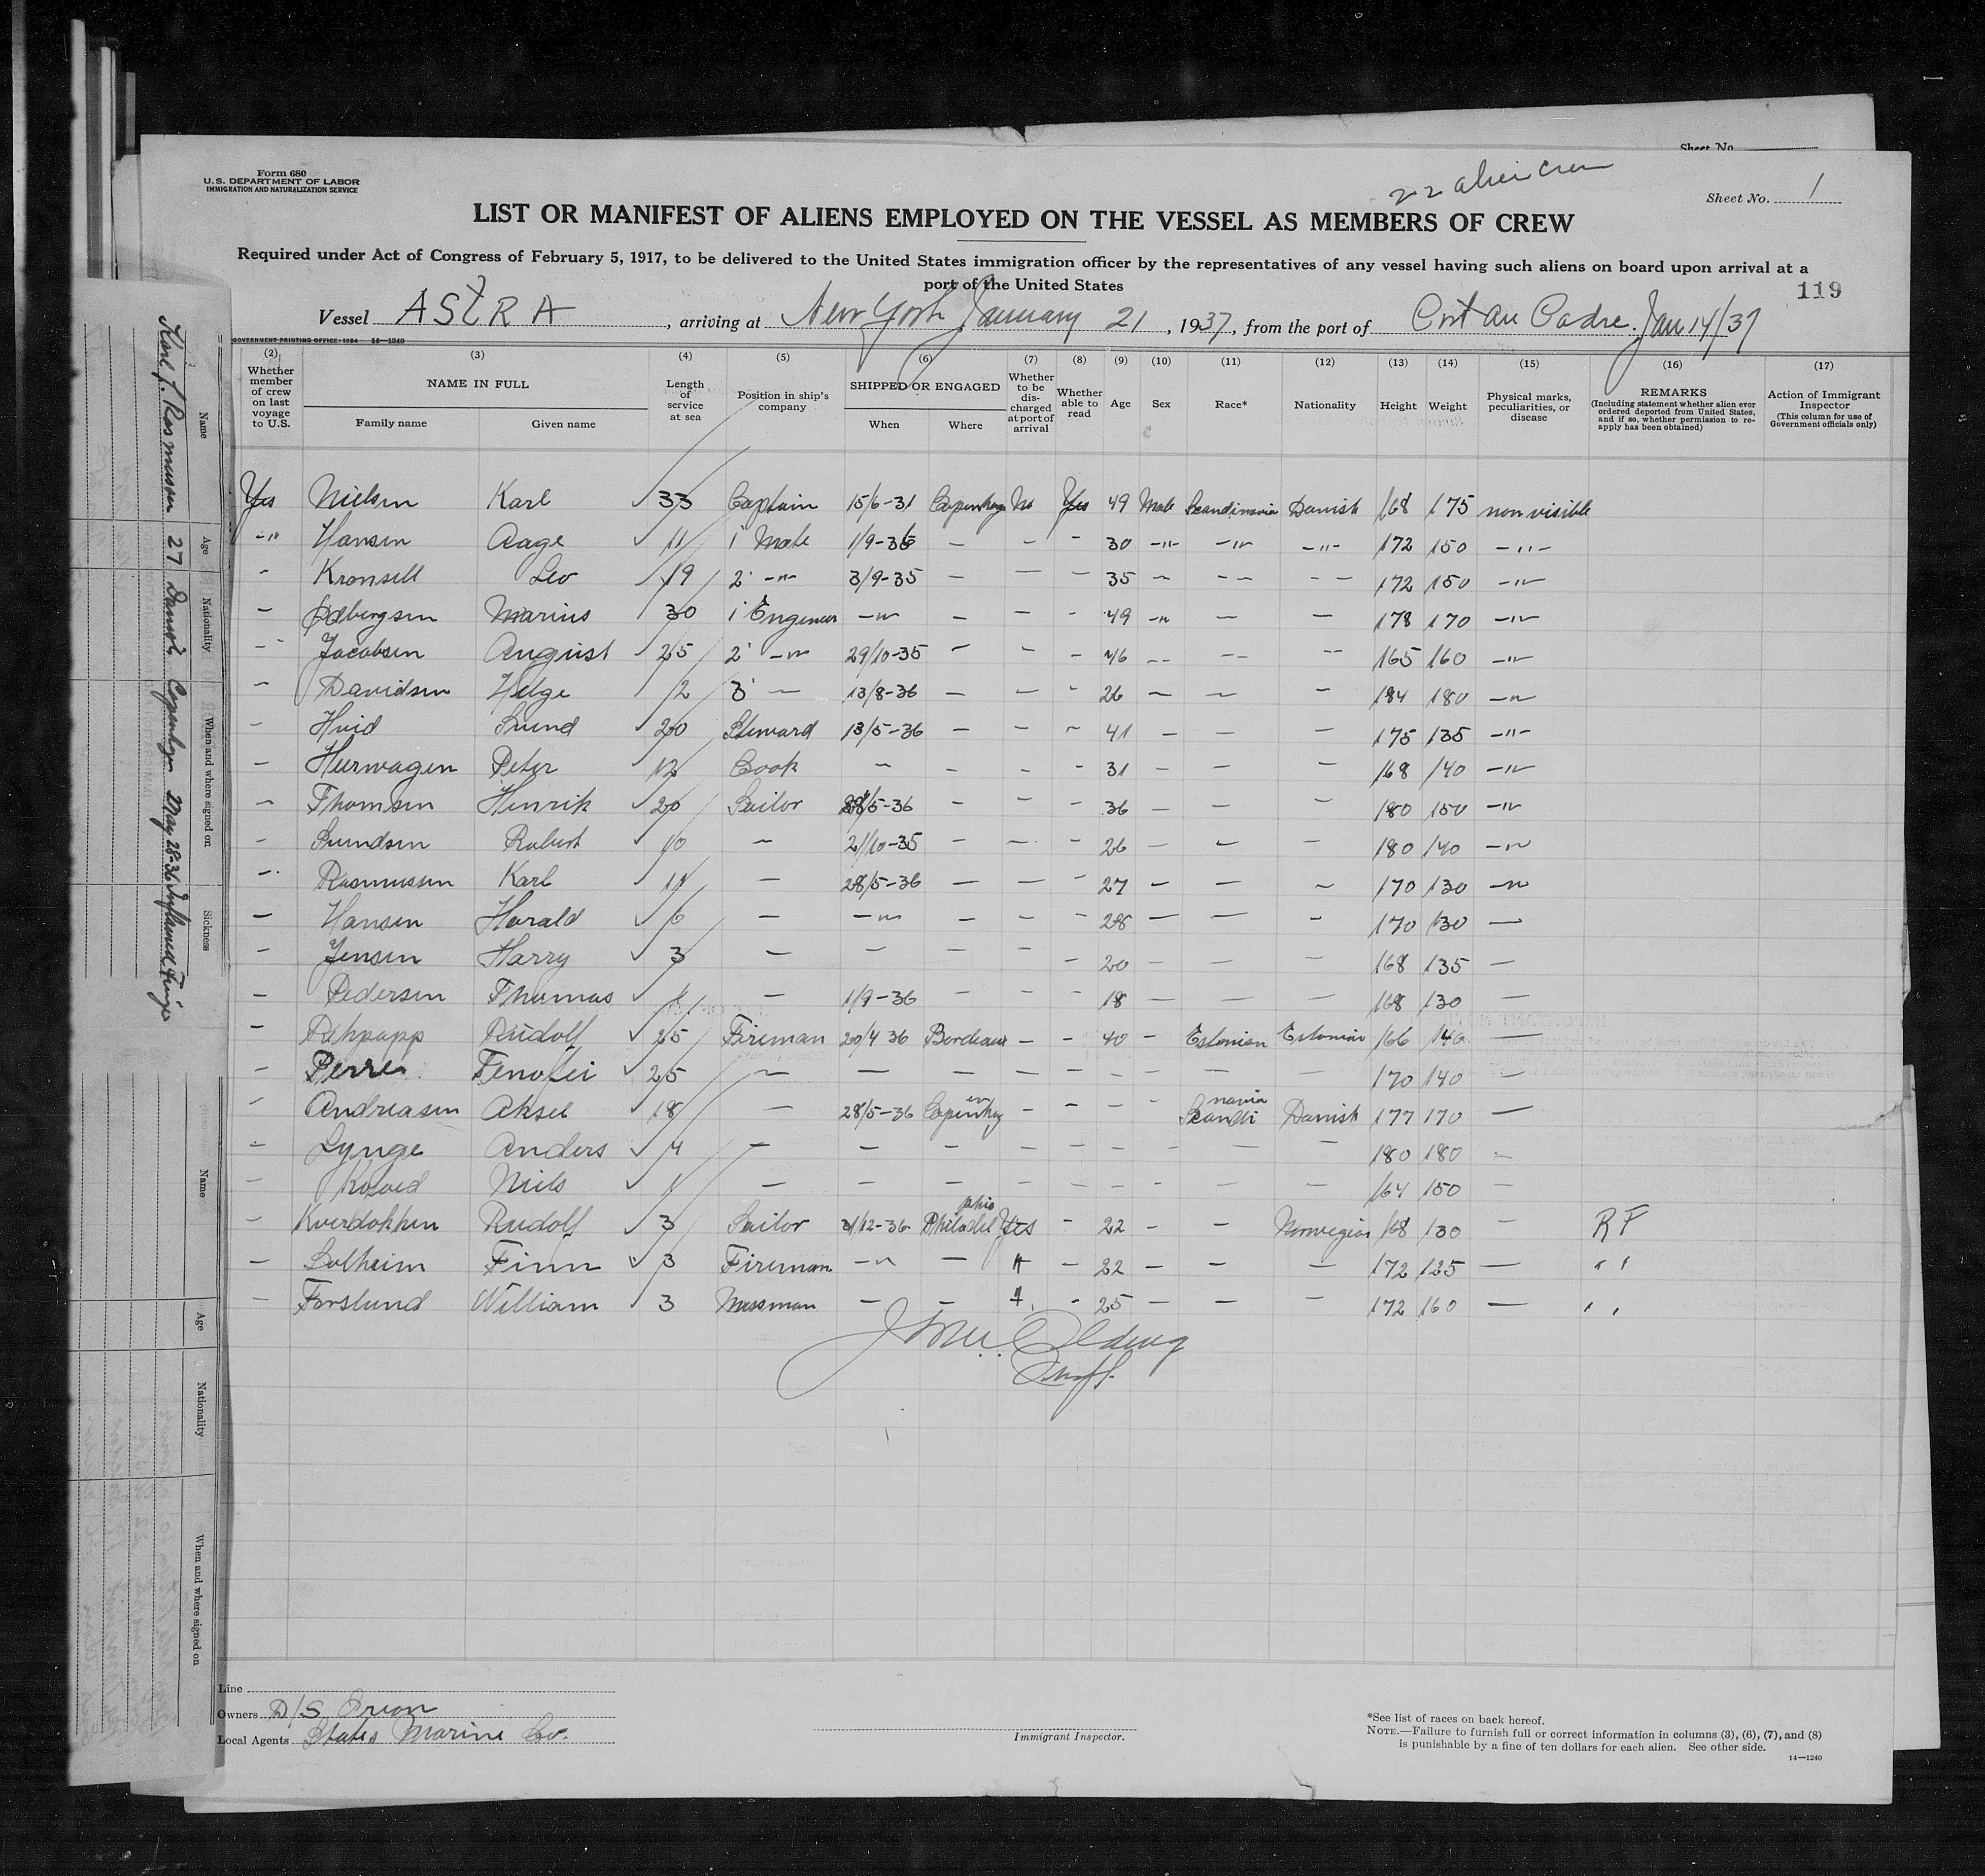 Sheet No.
Form 680
U.S. DEPARTMENT OF LABOR
IMMIGRATION AND NATURALIZATION SERVICE
22 alien crew
Sheet No. 1
LIST OR MANIFEST OF ALIENS EMPLOYED ON THE VESSEL AS MEMBERS OF CREW
Required under Act of Congress of February 5, 1917, to be delivered to the United States immigration officer by the representatives of any vessel having such aliens on board upon arrival at a
port of the United States
119
Vessel ASTRA, arriving at New York January 21, 1937, from the port of Port au Padre. Jan 14/37
GOVERNMENT PRINTING OFFICE: 1934 14—1240
(2) (3) (4) (5) (6) (7) (8) (9) (10) (11) (12) (13) (14) (15) (16) (17)
Whether member of crew on last voyage to U.S. NAME IN FULL Family name Given name Length of service at sea Position in ship's company SHIPPED OR ENGAGED When Where Whether to be discharged at port of arrival Whether able to read Age Sex Race* Nationality Height Weight Physical marks, peculiarities, or disease REMARKS (Including statement whether alien ever ordered deported from United States, and if so, whether permission to re-apply has been obtained) Action of Immigrant Inspector (This column for use of Government officials only)
Yes Nielsen Karl 33 Captain 15/6-31 Copenhagen No Yes 49 Male Scandinavia Danish 168 175 non visible
-"- Hansen Aage 11 1' Mate 1/9-36 — - - 30 -"- -"- -"- 172 150 -"-
- Kronsell Leo 19 2' -"- 3/9-35 — — - 35 - -- -- 172 150 -"-
- Marius 30 1' Engineer -"- — - - 49 -"- — — 178 170 -"-
- Jacobsen August 25 2' -"- 29/10-35 - - - 46 -- -- -- 165 160 -"-
- Davidsen Helge 2 3' — 13/8-36 — — - 26 — — - 184 180 -"-
- Hvid Svend 20 Steward 13/5-36 — - - 41 - — — 175 135 -"-
- Heerwagen Peter 12 Cook - - - - 31 - — — 168 140 -"-
- Thomsen Henrik 20 Sailor 28/5-36 - - - 36 - — — 180 150 -"-
- Svendsen Robert 10 — 21/10-35 - - - 26 — — — 180 140 -"-
- Rasmussen Karl 11 — 28/5-36 — — - 27 - — - 170 130 -"-
- Hansen Harald 6 — -"- — - - 28 — — - 170 130 —
- Jensen Harry 3 — — — — - 20 - — — 168 135 —
- Pedersen Thomas 1 — 1/9-36 - — - 18 — — — 168 130 —
- Rudolf 25 Fireman 20/4 36 Bordeaux - - 40 - Estonian Estonian 166 140 —
- Perre Fenofei 25 — — — — - - - — — 170 140 —
- Andreasen Aksel 18 — 28/5-36 Copenhagen - - - - Scandinavia Danish 177 170 —
- Lynge Anders 4 — — — — - - - — — 180 180 -
- Niels 1 — — — — - - - — — 164 150 —
- Kverdokken Rudolf 3 Sailor 31/12-36 Philadelphia Yes - 22 - - Norwegian 168 130 — RF
- Solheim Finn 3 Fireman -"- — " - 22 - - — 172 125 — " "
- Forslund William 3 Messman — — " - 25 — — — 172 160 — " "
Insp.
Line
Owners D/S Orion
Local Agents States Marine Co.
Immigrant Inspector.
*See list of races on back hereof.
NOTE.—Failure to furnish full or correct information in columns (3), (6), (7), and (8)
is punishable by a fine of ten dollars for each alien. See other side.
14—1240
Name Age Nationality When and where signed on Sickness
Karl J. Rasmussen 27 Danish Copenhagen May 28-36 Inflamed Finger
Name Age Nationality When and where signed on